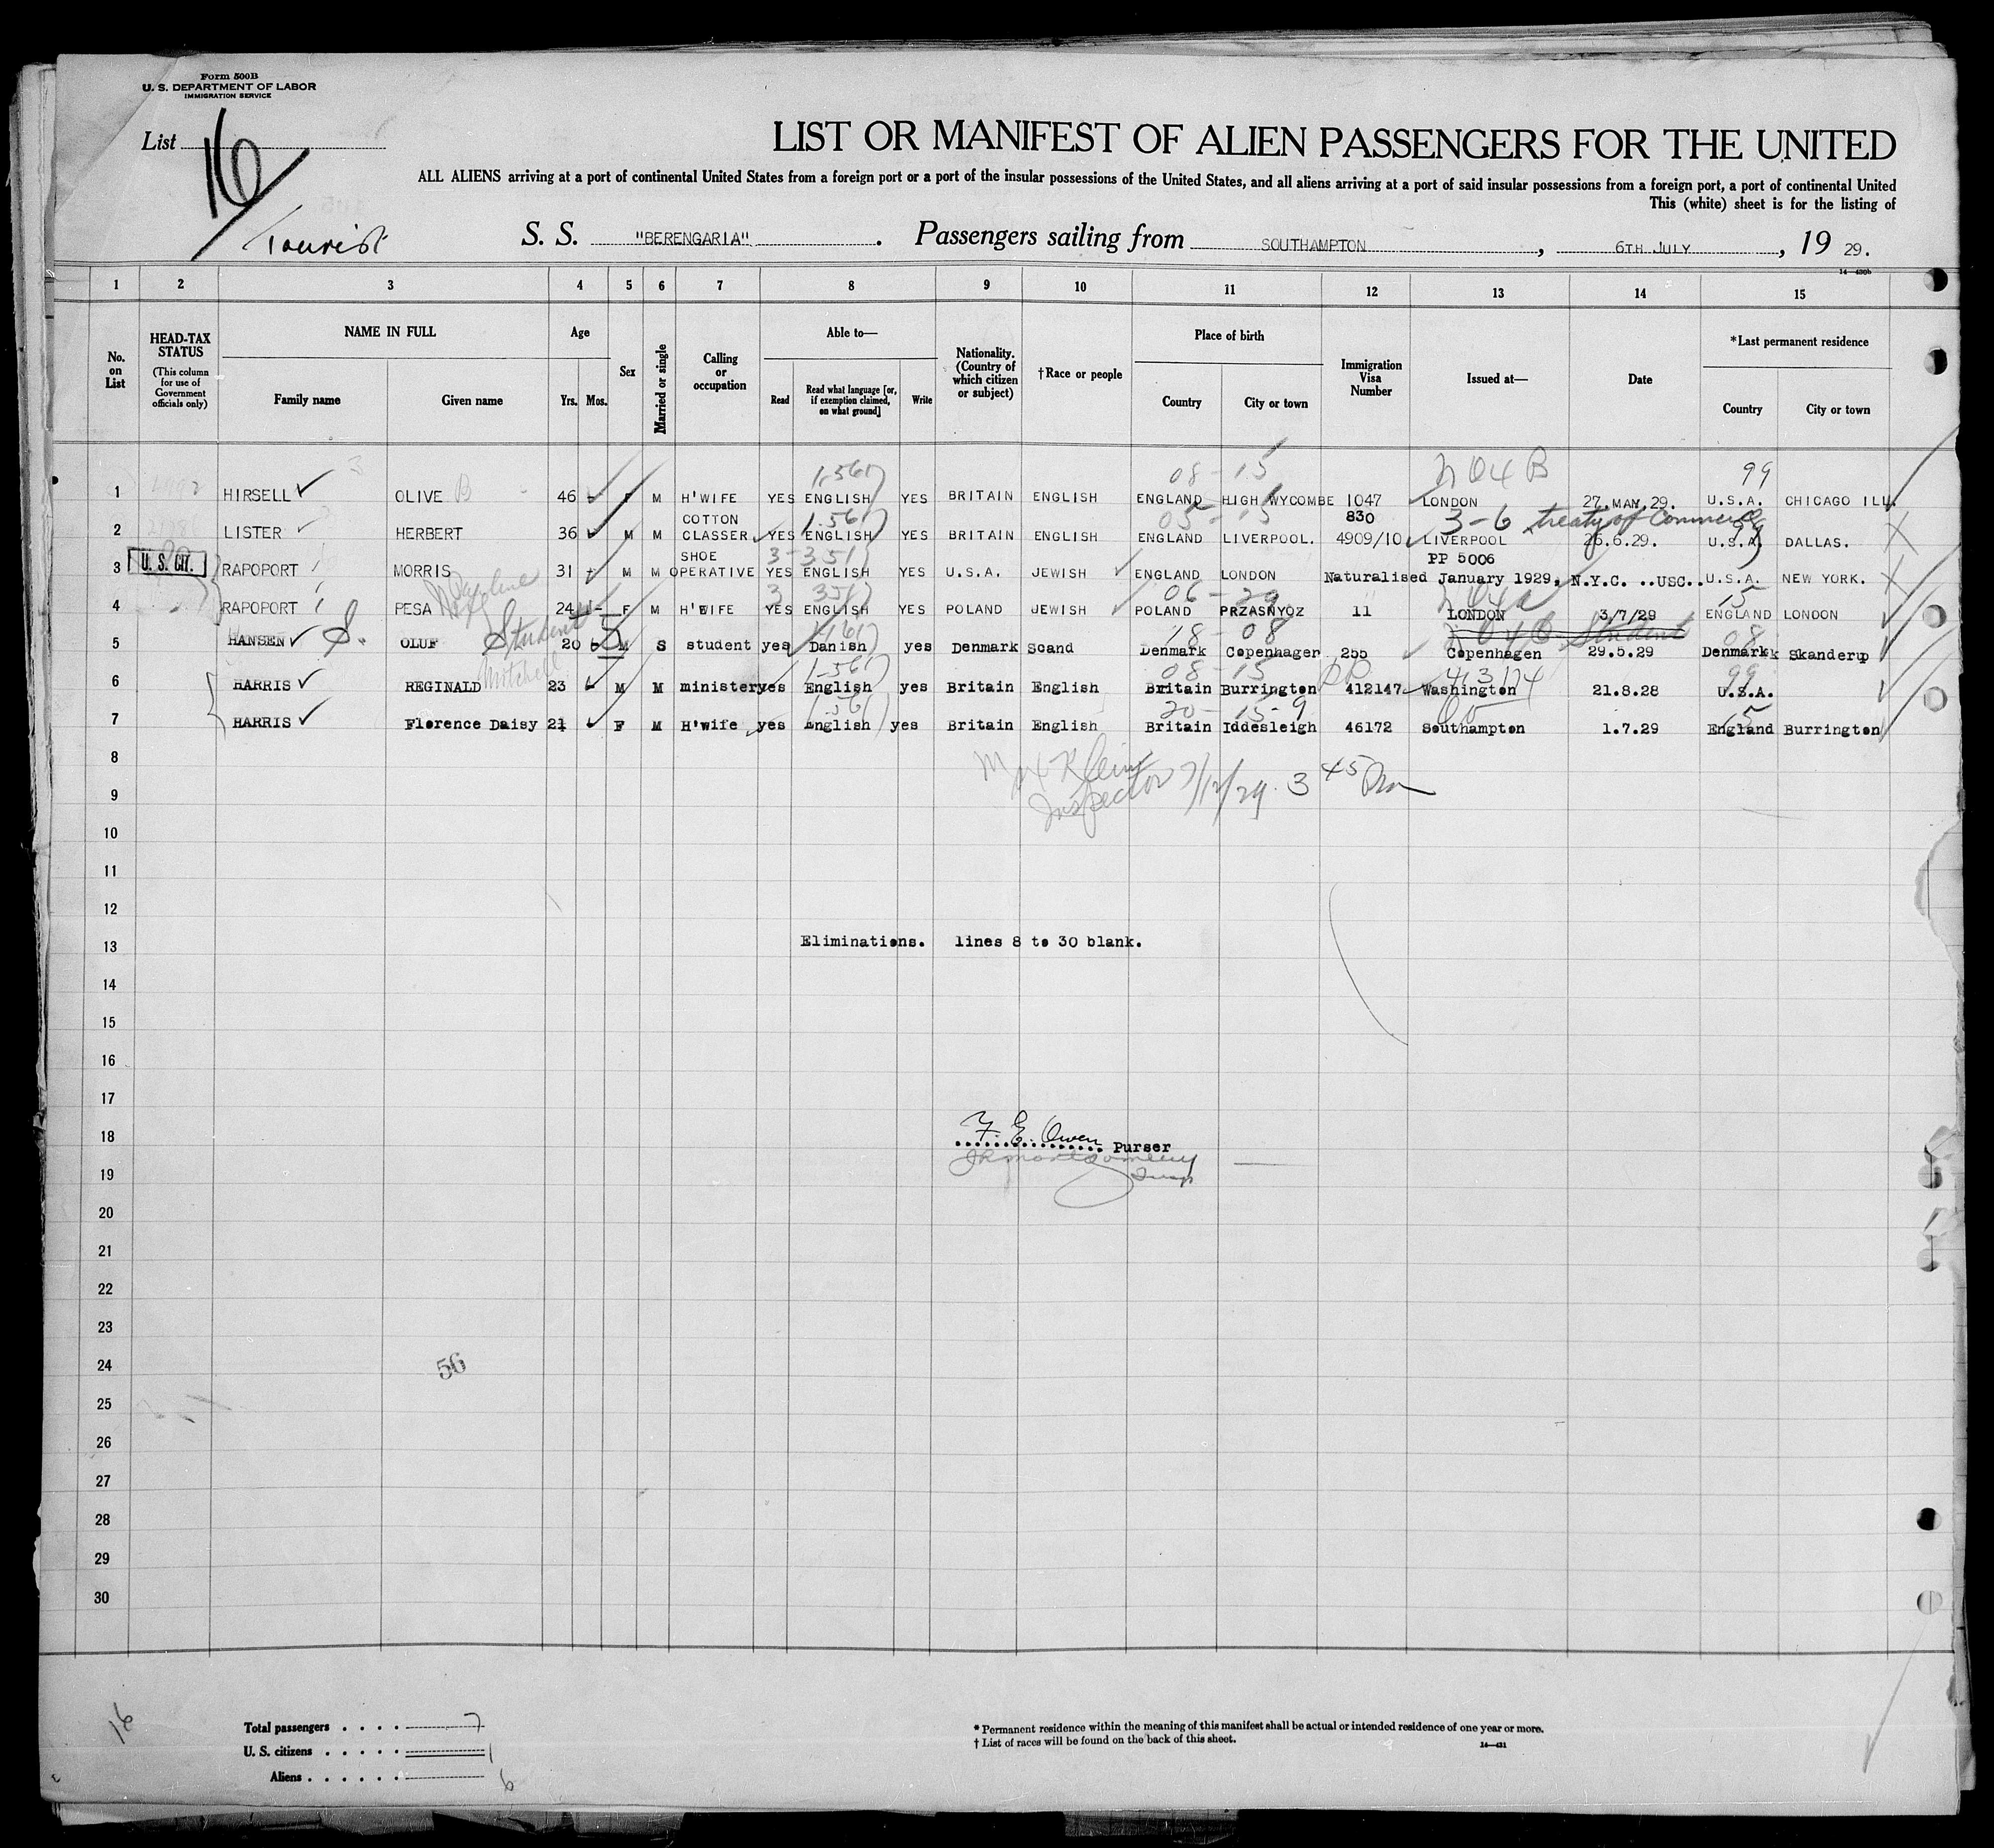 Form 500B
U. S. DEPARTMENT OF LABOR
IMMIGRATION SERVICE
List 16
LIST OR MANIFEST OF ALIEN PASSENGERS FOR THE UNITED
ALL ALIENS arriving at a port of continental United States from a foreign port or a port of the insular possessions of the United States, and all aliens arriving at a port of said insular possessions from a foreign port, a port of continental United
This (white) sheet is for the listing of
Tourist
S. S. "BERENGARIA". Passengers sailing from SOUTHAMPTON, 6TH JULY, 19 29.
14—430b
1 2 3 4 5 6 7 8 9 10 11 12 13 14 15
No. on List
HEAD-TAX STATUS (This column for use of Government officials only)
NAME IN FULL Family name Given name
Age Yrs. Mos.
Sex
Married or single
Calling or occupation
Able to— Read Read what language [or, if exemption claimed, on what ground] Write
Nationality. (Country of which citizen or subject)
†Race or people
Place of birth Country City or town
Immigration Visa Number
Issued at—
Date
*Last permanent residence Country City or town
1-561 08-15 04 B 99
1 HIRSELL OLIVE B 46 F M H'WIFE YES ENGLISH YES BRITAIN ENGLISH ENGLAND HIGH WYCOMBE 1047 LONDON 27.MAY.29. U.S.A. CHICAGO ILL.
COTTON 1-561 05-15 830 3-6 treaty of Commerce 99
2 LISTER HERBERT 36 M M CLASSER YES ENGLISH YES BRITAIN ENGLISH ENGLAND LIVERPOOL. 4909/10 LIVERPOOL 26.6.29. U.S.A. DALLAS.
U. S. CIT. SHOE 3-351 PP 5006
3 RAPOPORT MORRIS 31 M M OPERATIVE YES ENGLISH YES U.S.A. JEWISH ENGLAND LONDON Naturalised January 1929, N.Y.C. ..USC..U.S.A. NEW YORK.
3 351 06-29 15
4 RAPOPORT PESA 24 F M H'WIFE YES ENGLISH YES POLAND JEWISH POLAND PRZASNYOZ 11 LONDON 3/7/29 ENGLAND LONDON
Student 1-161 18-08 04 Student 08
5 HANSEN S. OLUF 20 M S student yes Danish yes Denmark Scand Denmark Copenhagen 255 Copenhagen 29.5.29 Denmark Skanderup
Mitchell 1-561 08-15 PP 413174 99
6 HARRIS REGINALD 23 M M minister yes English yes Britain English Britain Burrington 412147 Washington 21.8.28 U.S.A.
1-561 20-15-9 15
7 HARRIS Florence Daisy 21 F M H'wife yes English yes Britain English Britain Iddesleigh 46172 Southampton 1.7.29 England Burrington
8
Max Klein
Inspector 7/12/29. 3 45 Pm
9
10
11
12
13 Eliminations. lines 8 to 30 blank.
14
15
16
17
18 F. E. Owen Purser
19 Insp
20
21
22
23
24 56
25
26
27
28
29
30
16
Total passengers . . . . 7
U. S. citizens . . . . . 1
Aliens . . . . . . 6
* Permanent residence within the meaning of this manifest shall be actual or intended residence of one year or more.
† List of races will be found on the back of this sheet.
14—431